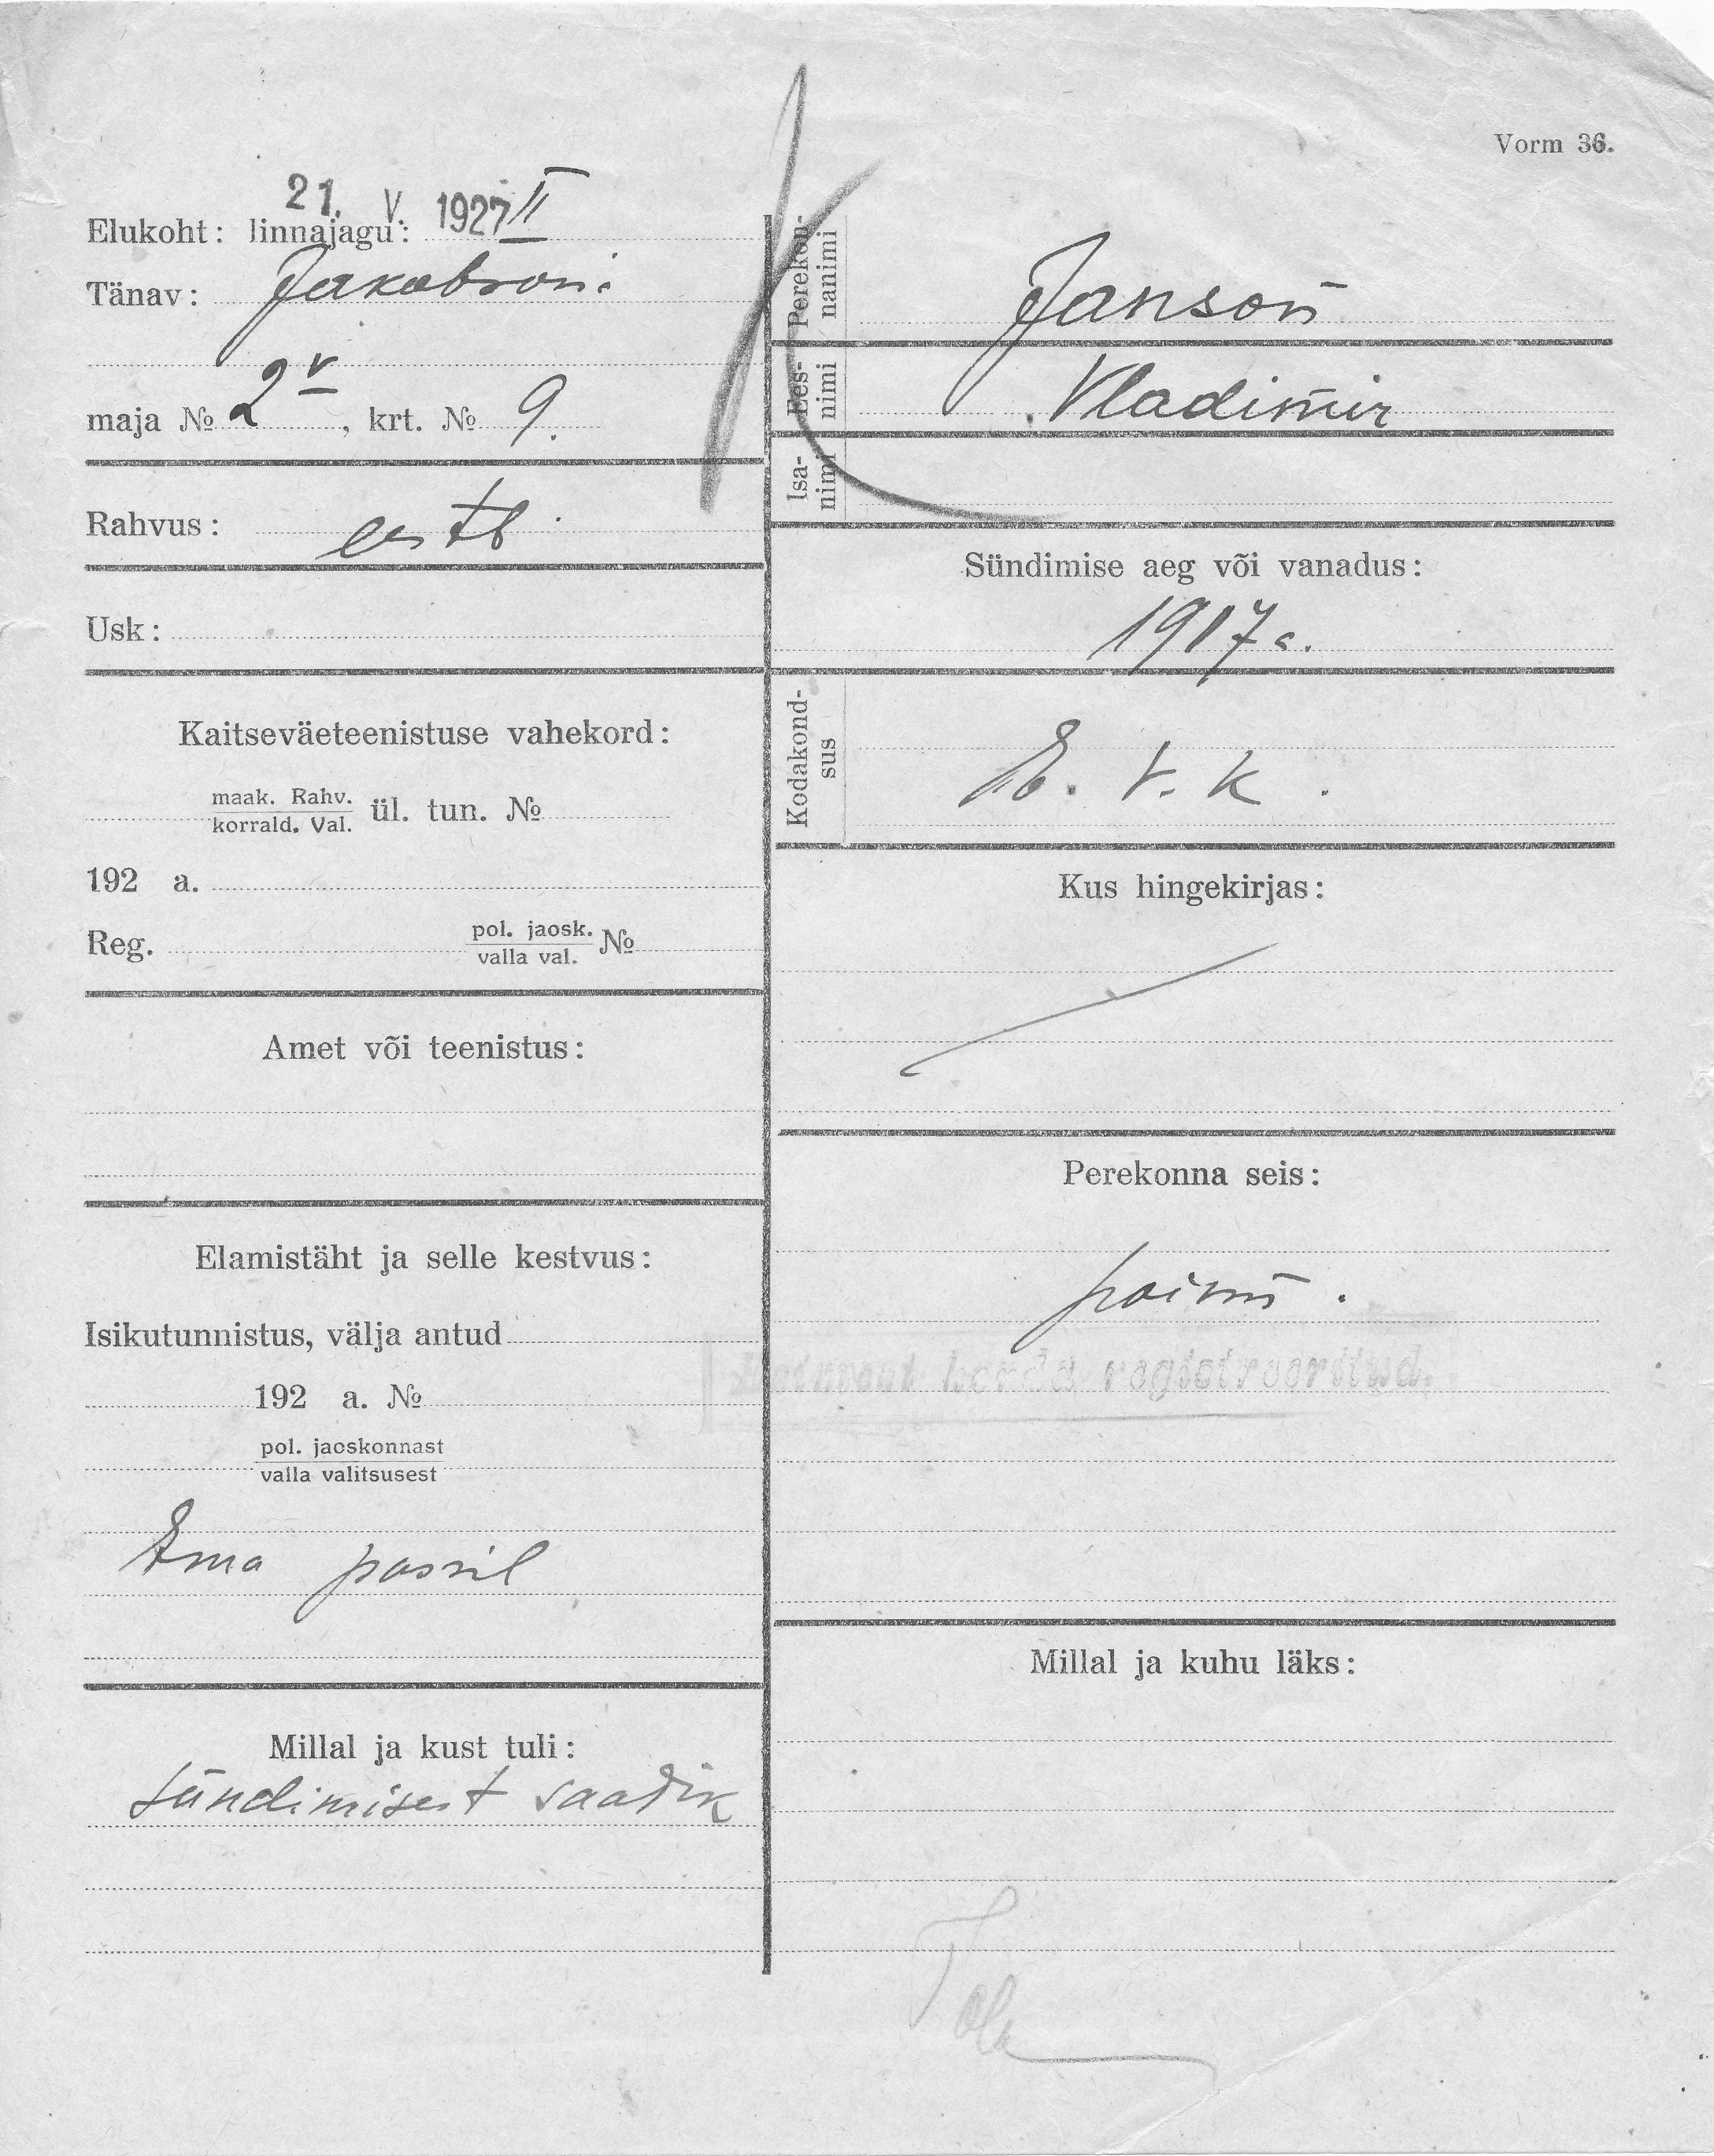 Vorm 36.
21. V. 1927
Elukoht: linnajagu: II
Tänav: Jakobsoni
maja № 2 v, krt. № 9.
Rahvus: eestl
Usk:
Kaitseväeteenistuse vahekord:
maak. Rahv.
korrald. Val. ül. tun. №
192 a.
Reg. pol. jaosk.
valla val. №
Amet või teenistus:
Elamistäht ja selle kestvus:
Isikutunnistus, välja antud
192 a. №
pol. jaoskonnast
valla valitsusest
Ema passil
Millal ja kust tuli:
sündimisest saadik
Perekon-
nanimi Janson
Ees-
nimi Vladimir
Isa-
nimi
Sündimise aeg või vanadus:
1917 a.
Kodakond-
sus E. V. K.
Kus hingekirjas:
Perekonna seis:
korda registreeritud.
Millal ja kuhu läks: